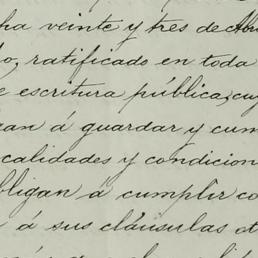 ha veinte y tres de Abri
o, ratificado en toda
e escritura pública, cuy
gan á guardar y cum
calidades y condicion
bligan á cumplir co
n á sus cláusulas ot